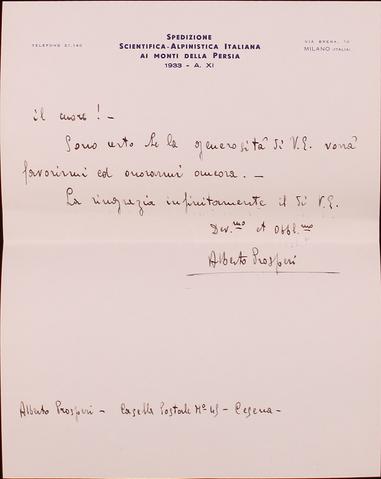 SPEDIZIONE
SCIENTIFICA-ALPINISTICA ITALIANA
AI MONTI DELLA PERSIA
1933 - A. XI
TELEFONO 21.140
VIA BRERA, 10
MILANO (ITALIA)
il cuore! -
Sono certo che la generosità di V. E. vorrà
favorirmi ed onorarmi ancora. -
La ringrazia infinitamente il di V. E.
Dev.mo et Obbl.mo
Alberto Prosperi
Alberto Prosperi - Casella Postale Nº 45 - Cesena -